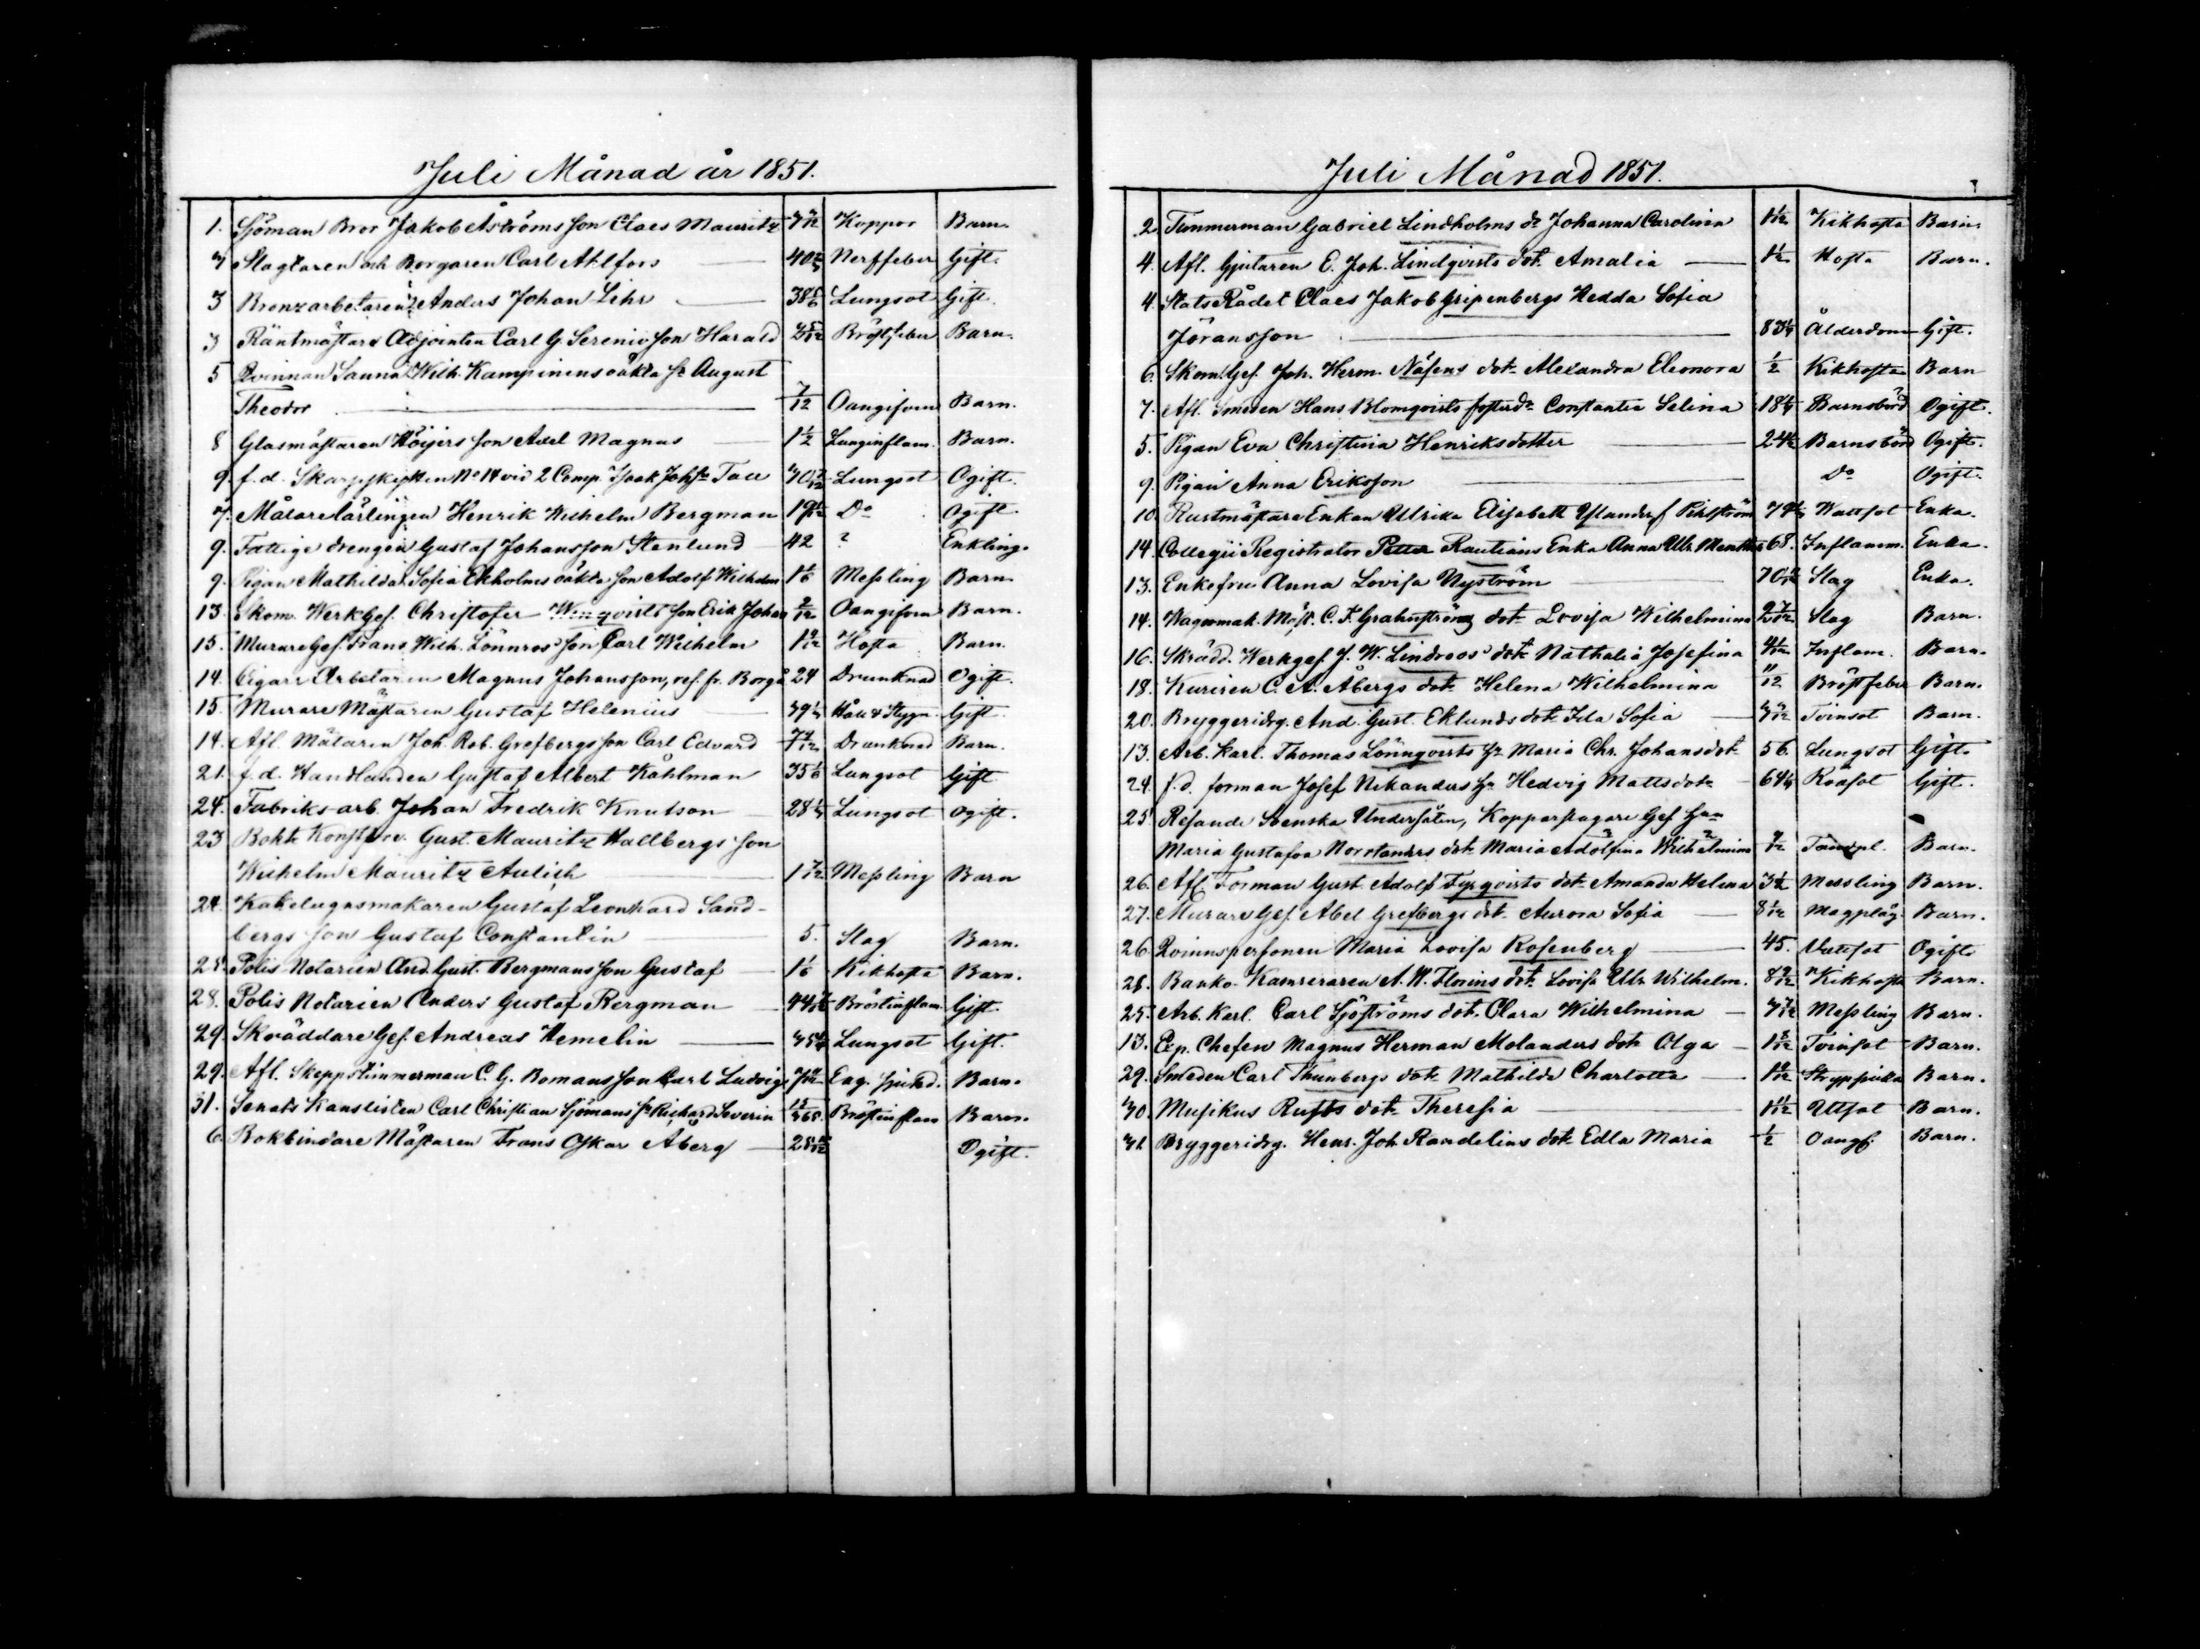 Juli Månad år 1851.
1. Sjöman Bror Jakob Åströms son Claes Mauritz Koppor Barn.
3 Slagtaren och Borgaren Carl Ahlfors 40 Nerffeber Gift.
3 Bronzarbetaren Anders Johan Lihr 38 5/6 Lungsot Gift.
3 Räntmästare Adjointen Carl G. Serenii son Harald Bröstfeber Barn.
5 Qvinnan Sanna Wilh. Kampinens oäkta S. August
Theodor 7/12 Oangifven Barn.
8 Glasmästaren Höijers son Axel Magnus 1 1/2 Lunginflam. Barn.
9. f.d. Skarpskytten No 14 vid 2 Comp. Isaak Johss. Lungsot Ogift.
7. Målarelärlingen Henrik Wilhelm Bergman Do Ogift.
9. Fattige drengen Gustaf Johansson Stenlund 42 ? Enkling.
9. Pigan Mathilda Sofia Ekholms oäkta son Adolf Wilhelm 1 1/6 Messling Barn.
13. Skom. Werkgef. Christofer son Erik Johan 2/12 Oangifven Barn.
15. Murare Gef. Frans Wilh. Lönnros' son Carl Wilhelm Hosta Barn.
14. Cigarr Arbetaren Magnus Johansson, res. fr. Borgå 24 Drunknad Ogift.
15. Murare Mästaren Gustaf Helenius Håll & Stygn Gift.
14. Afl. Målaren Joh. Rob. Grefbergs son Carl Edvard Drunknad Barn.
21. f.d. Handlanden Gustaf Albert Kåhlman 35 1/6 Lungsot Gift
24. Fabriks arb. Johan Fredrik Knutson Lungsot Ogift.
23 Gust. Mauritz Hallbergs son
Wilhelm Mauritz 1 7/12 Messling Barn
24. Kakelugnsmakaren Gustaf Leonhard Sand-
bergs son Gustaf Constantin 5. Slag Barn.
25. Polis Notarien And. Gust. Bergmans son Gustaf 1 1/6 Kikhosta Barn.
28. Polis Notarien Anders Gustaf Bergman Bröstinflam. Gift.
29. Skräddare Gef. Andreas Hemelin Lungsot Gift.
29. Afl. Skeppstimmerman C. G. Bomans son Carl Ludvig Barn.
31. Senats Kanslisten Carl Christian Sjömans S. Richard Severin Bröstinflam Barn.
6. Bokbindare Mästaren Frans Oskar Åberg Ogift.
Juli Månad 1851.
2. Timmerman Gabriel Lindholms dr Johanna Carolina Kikhosta Barn.
4. Afl. Gjutaren E. Joh. Lindqvists dot. Amalia Hosta Barn.
4. Stats Rådet Claes Jakob Gripenbergs Hedda Sofia
Jöransson Ålderdom Gift.
6. Skom. Gef. Joh. Herm. Näsens dotr Alexandra Eleonora 1/2 Kikhosta Barn
7. Afl. Smeden Hans Blomqvists fosterdr Constantia Selina Barnsbörd Ogift.
5. Pigan Eva Christina Henriksdotter Barnsbörd Ogift.
9. Pigan Anna Eriksson Do Ogift.
10. Rustmästare Enkan Ulrika Elisabeth Wattsot Enka.
14. Collegii Registrator Petter Rautians Enka Anna Ulr. 68. Inflamm. Enka.
13. Enkefru Anna Lovisa Nyström Slag Enka.
14. Wagnmak. Mäst. C. F. Grahnströms dotr Lovisa Wilhelmina Slag Barn.
16. Skrädd. Werkgef. J. W. Lindroos' dotr Nathalia Josefina Inflam. Barn.
18. Kuriren C. A. Åbergs dotr Helena Wilhelmina 11/12 Bröstfeber Barn.
20. Bryggeridrg. And. Gust. Eklunds dotr Ida Sofia Tvinsot Barn.
13. Arb. Karl. Thomas Lönnqvists Hr Maria Chr. Johansdotr 56. Lungsot Gift.
24. f.d. forman Josef Nikanders Hr Hedvig Mattsdotr Rödsot Gift.
25. Resande Svenska Undersåten, Kopparslagare Gef.
Maria Gustafva Norrlanders dotr Maria Adolfina Wilhelmina Barn.
26. Afl. Forman Gust. Adolf Fyrqvists dotr Amanda Helena 3 1/2 Messling Barn.
27. Murare Gef. Abel Grefbergs dotr Aurora Sofia Magplåg Barn.
26. Qvinnspersonen Maria Lovisa Rosenberg 45. Vattsot Ogift.
28. Banko Kamreraren A. W. Florins dot. Lovisa Ulr. Wilhelm. Kikhosta Barn.
25. Arb. Karl. Carl Sjöströms dot. Clara Wilhelmina Messling Barn.
13. Exp. Chefen Magnus Herman Molanders dotr Olga Tvinsot Barn.
29. Smeden Carl Thunbergs dotr Mathilda Charlotta Strypsjuka Barn.
30. Musikus dotr Theresia Utsot Barn.
31 Bryggeridrg. Henr. Joh. Randelins dotr Edla Maria 1/2 Oangf. Barn.